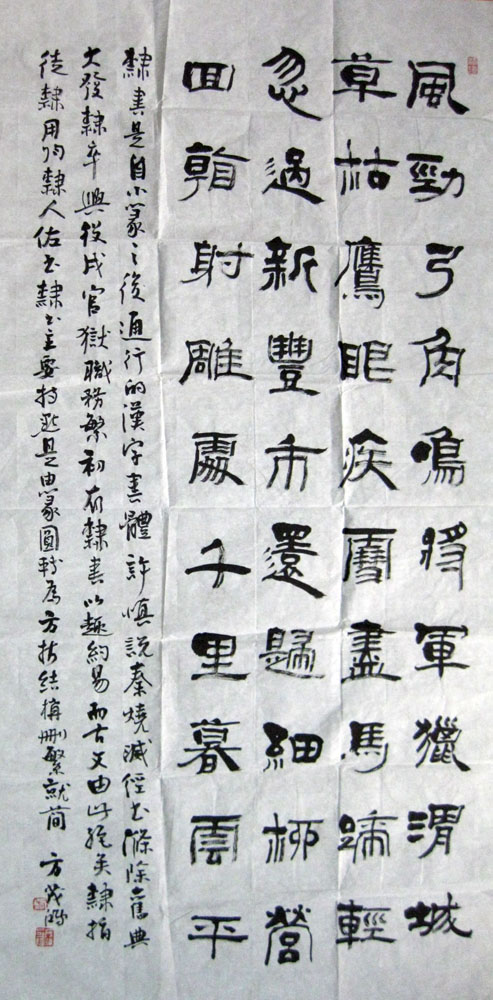 風勁弓角鳴將軍獵渭城
草枯鷹眼疾雪盡馬蹄輕
忽過新豐市還歸細柳營
回看射雕處千里暮雲平
隸書是自小篆之後通行的漢字書體許慎說秦燒滅經書滌除舊典
大發隸卒興役戍官獄職務繁初有隸書以趣約易而古文由此絕矣隸指
徒隸用為隸人佐書隸書主要特點是由篆圓轉為方折結構刪繁就简 方茂鴻